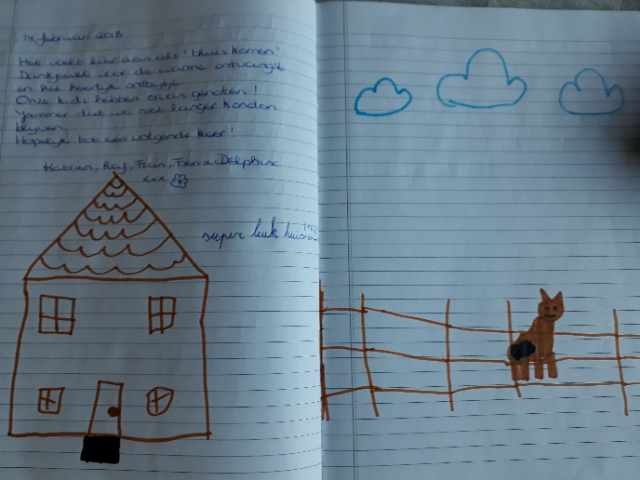 14 februari 2018
Het voelt hier aan als 'thuiskomen'.
Dankjewel voor de warme ontvangst
en het heerlijk ontbijtje
Onze kids hebben ervan genoten!
Jammer dat we niet langer konden
blijven.
Hopelijk tot een volgende keer!
Katrien, Roy, Finn, Fenna Delphine
xxx
super leuk